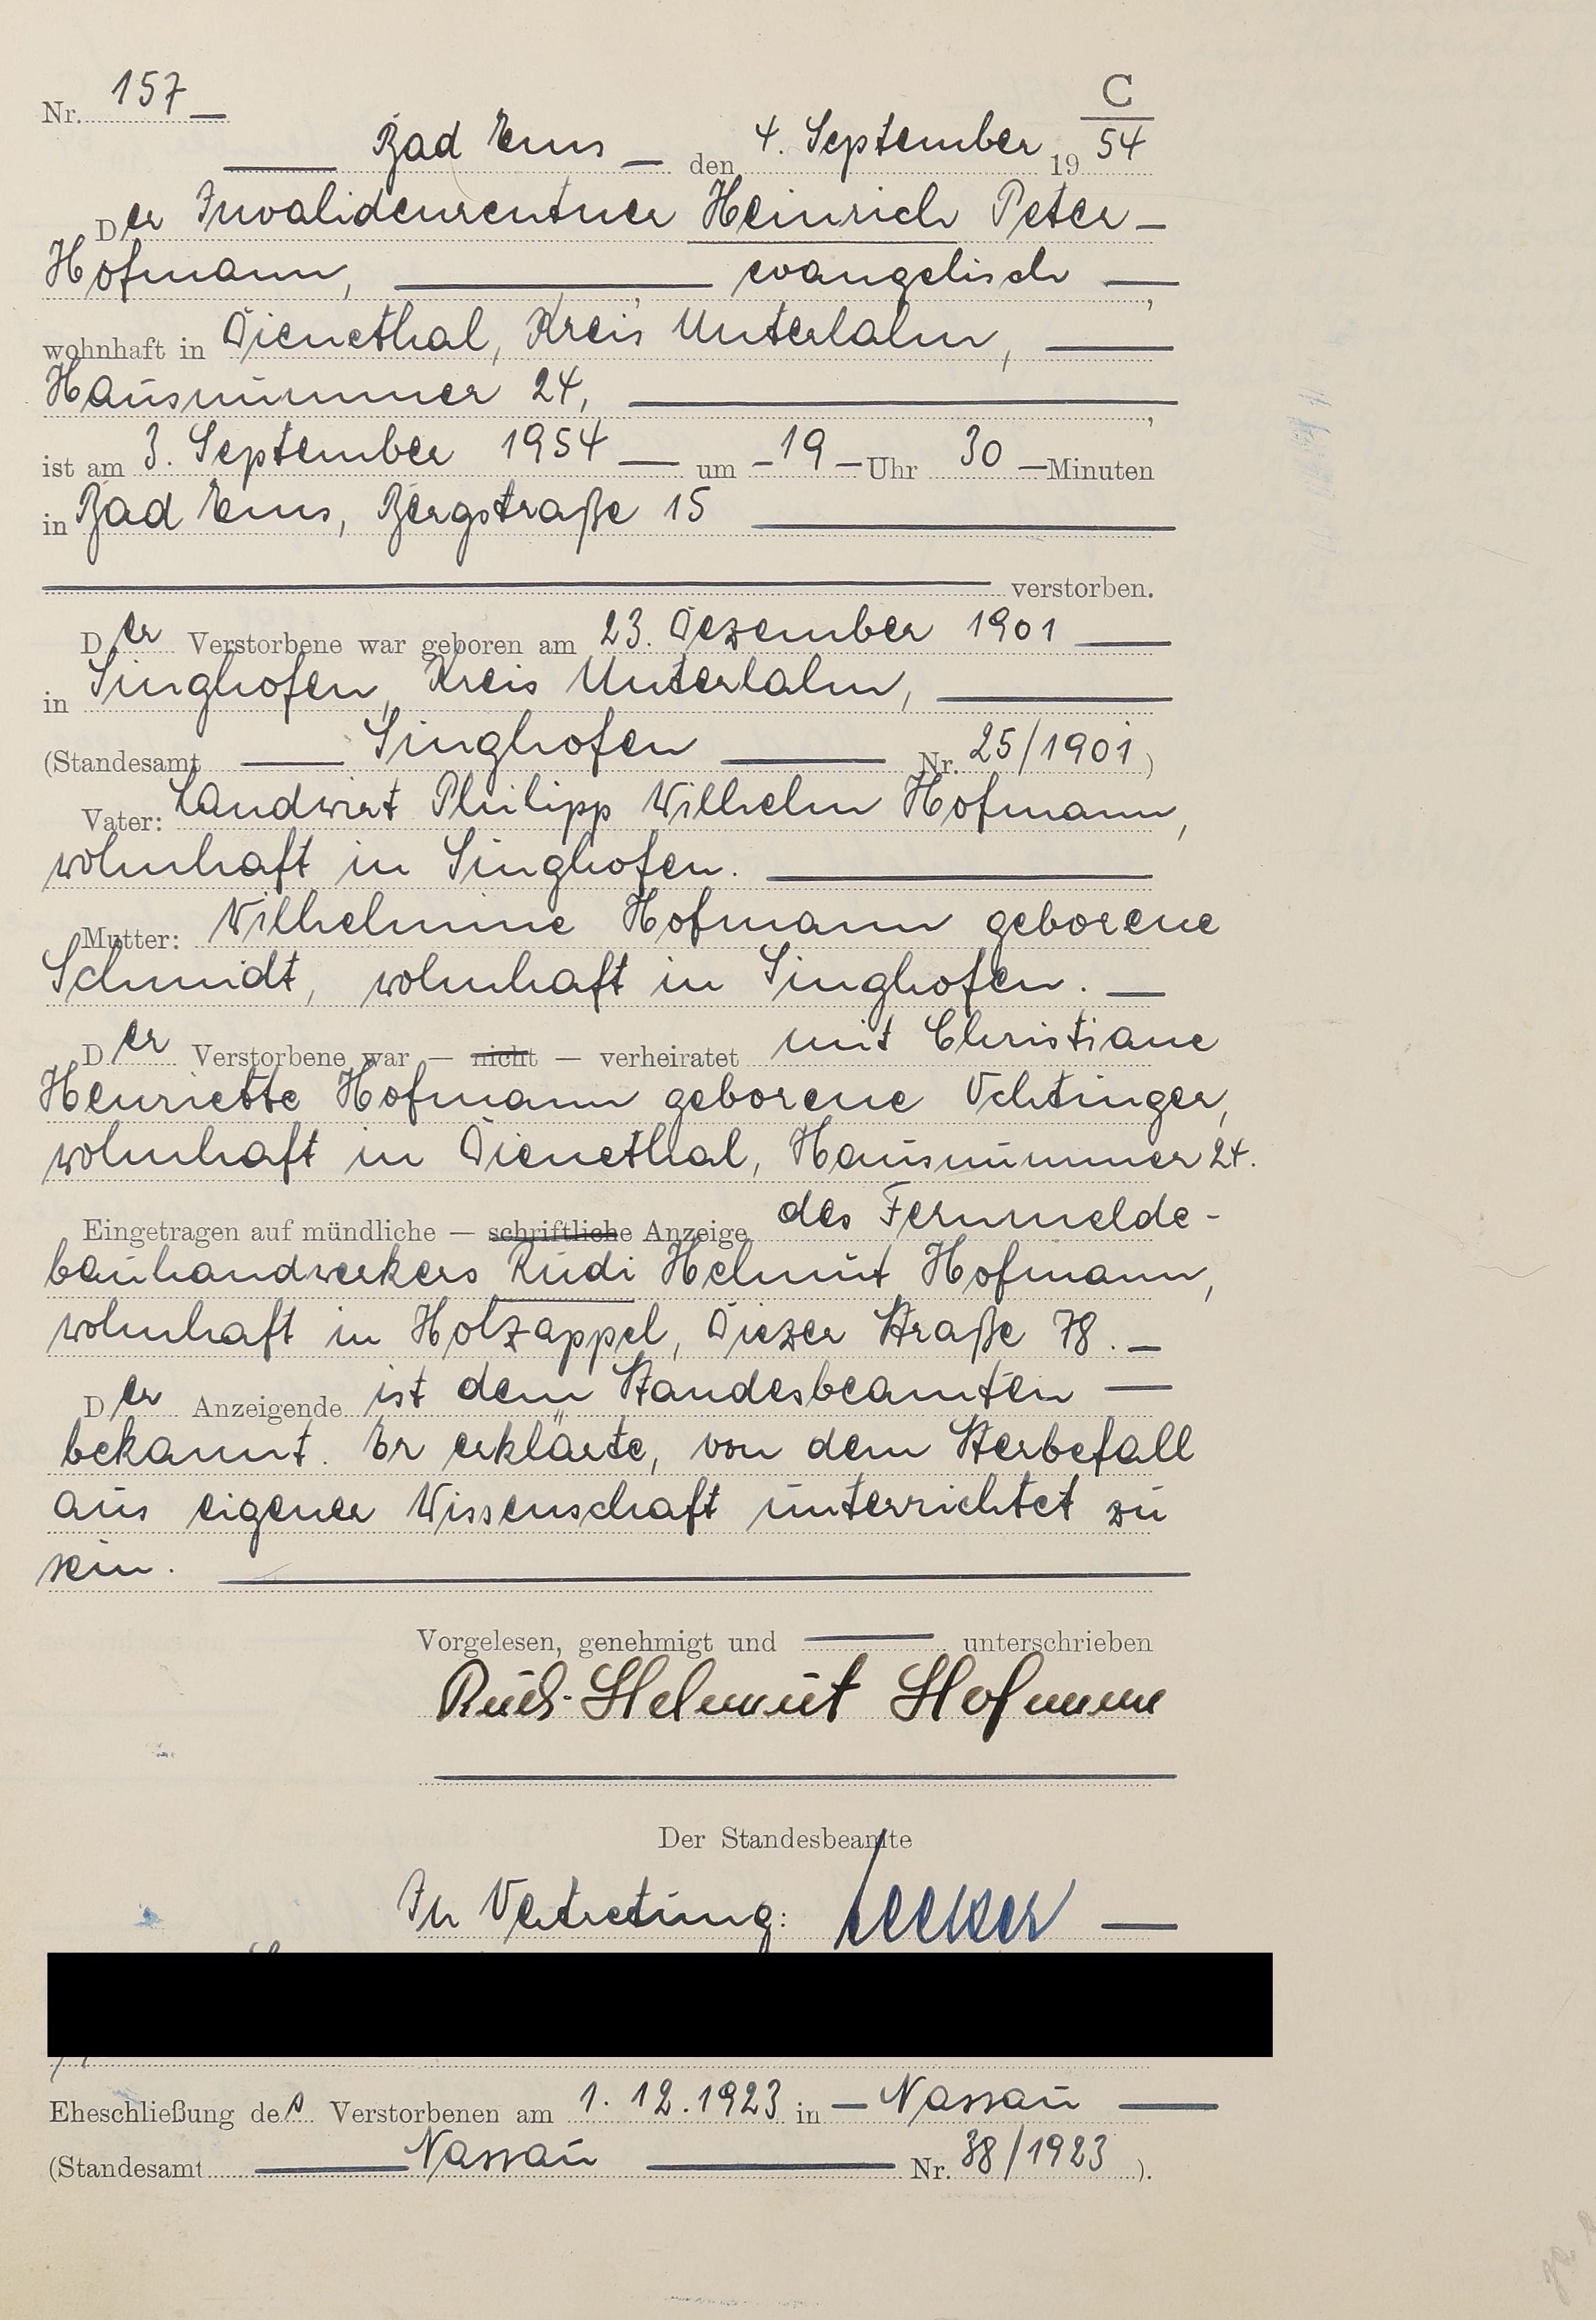 C
Nr. 157
Bad Ems den 4. September 1954
Der Invalidenrentner Heinrich Peter
Hofmann, evangelisch,
wohnhaft in Dienethal, Kreis Unterlahn,
Hausnummer 24,
ist am 3. September 1954 um 19 Uhr 30 Minuten
in Bad Ems, Bergstraße 15
verstorben.
Der Verstorbene war geboren am 23. Dezember 1901
in Singhofen, Kreis Unterlahn,
(Standesamt Singhofen Nr. 25/1901)
Vater: Landwirt Philipp Wilhelm Hofmann,
wohnhaft in Singhofen.
Mutter: Wilhelmine Hofmann geborene
Schmidt, wohnhaft in Singhofen.
Der Verstorbene war — nicht — verheiratet mit Christiane
Henriette Hofmann geborene Ochtinger,
wohnhaft in Dienethal, Hausnummer 24.
Eingetragen auf mündliche — schriftliche Anzeige des Fernmelde-
bauhandwerkers Rudi Helmut Hofmann,
wohnhaft in Holzappel, Diezer Straße 78.
Der Anzeigende ist dem Standesbeamten
bekannt. Er erklärte, von dem Sterbefall
aus eigener Wissenschaft unterrichtet zu
sein.
Vorgelesen, genehmigt und unterschrieben
Rudi Helmut Hofmann
Der Standesbeamte
In Vertretung:
Eheschließung des Verstorbenen am 1.12.1923 in Nassau
(Standesamt Nassau Nr. 38/1923).